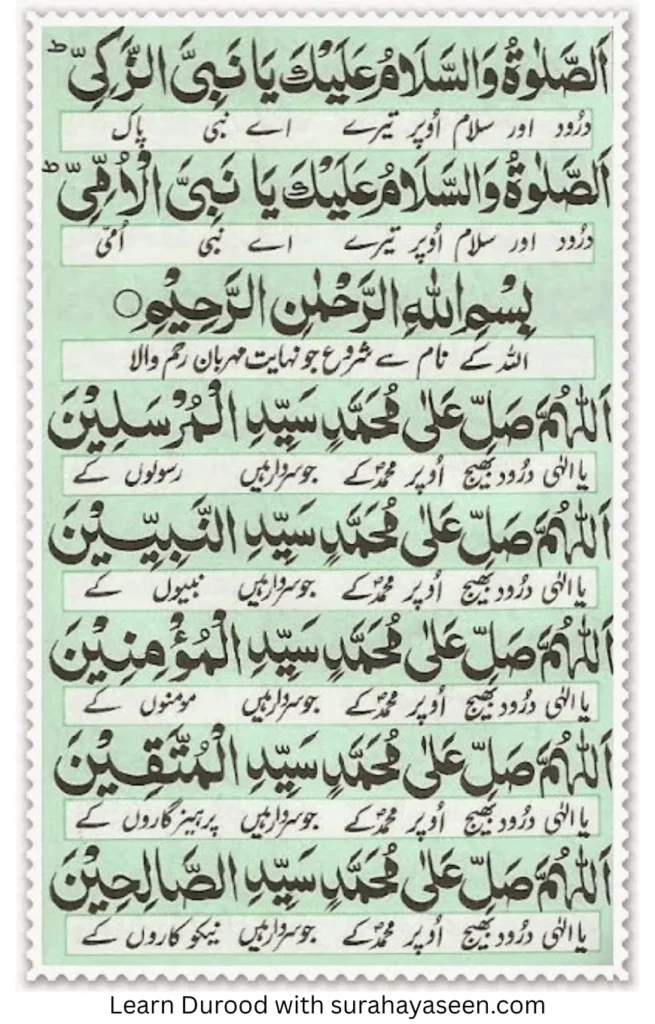 اَلصَّلٰوةُ وَالسَّلَامُ عَلَيْكَ يَا نَبِىَّ الزَّكِىِّ ؕ
درُود اور سلام اُوپر تیرے اے نبی پاک
اَلصَّلٰوةُ وَالسَّلَامُ عَلَيْكَ يَا نَبِىَّ الْاُمِّىِّ ؕ
درُود اور سلام اُوپر تیرے اے نبی اُمّی
بِسْمِ اللهِ الرَّحْمٰنِ الرَّحِيْمِ ○
اللہ کے نام سے شروع جو نہایت مہربان رحم والا
اَللّٰهُمَّ صَلِّ عَلٰى مُحَمَّدٍ سَيِّدِ الْمُرْسَلِيْنَ
یا الٰہی درُود بھیج اُوپر محمدؐ کے جو سردار ہیں رسولوں کے
اَللّٰهُمَّ صَلِّ عَلٰى مُحَمَّدٍ سَيِّدِ النَّبِيّٖنَ
یا الٰہی درُود بھیج اُوپر محمدؐ کے جو سردار ہیں نبیوں کے
اَللّٰهُمَّ صَلِّ عَلٰى مُحَمَّدٍ سَيِّدِ الْمُؤْمِنِيْنَ
یا الٰہی درُود بھیج اُوپر محمدؐ کے جو سردار ہیں مومنوں کے
اَللّٰهُمَّ صَلِّ عَلٰى مُحَمَّدٍ سَيِّدِ الْمُتَّقِيْنَ
یا الٰہی درُود بھیج اُوپر محمدؐ کے جو سردار ہیں پرہیزگاروں کے
اَللّٰهُمَّ صَلِّ عَلٰى مُحَمَّدٍ سَيِّدِ الصَّالِحِيْنَ
یا الٰہی درُود بھیج اُوپر محمدؐ کے جو سردار ہیں نیکو کاروں کے
Learn Durood with surahayaseen.com